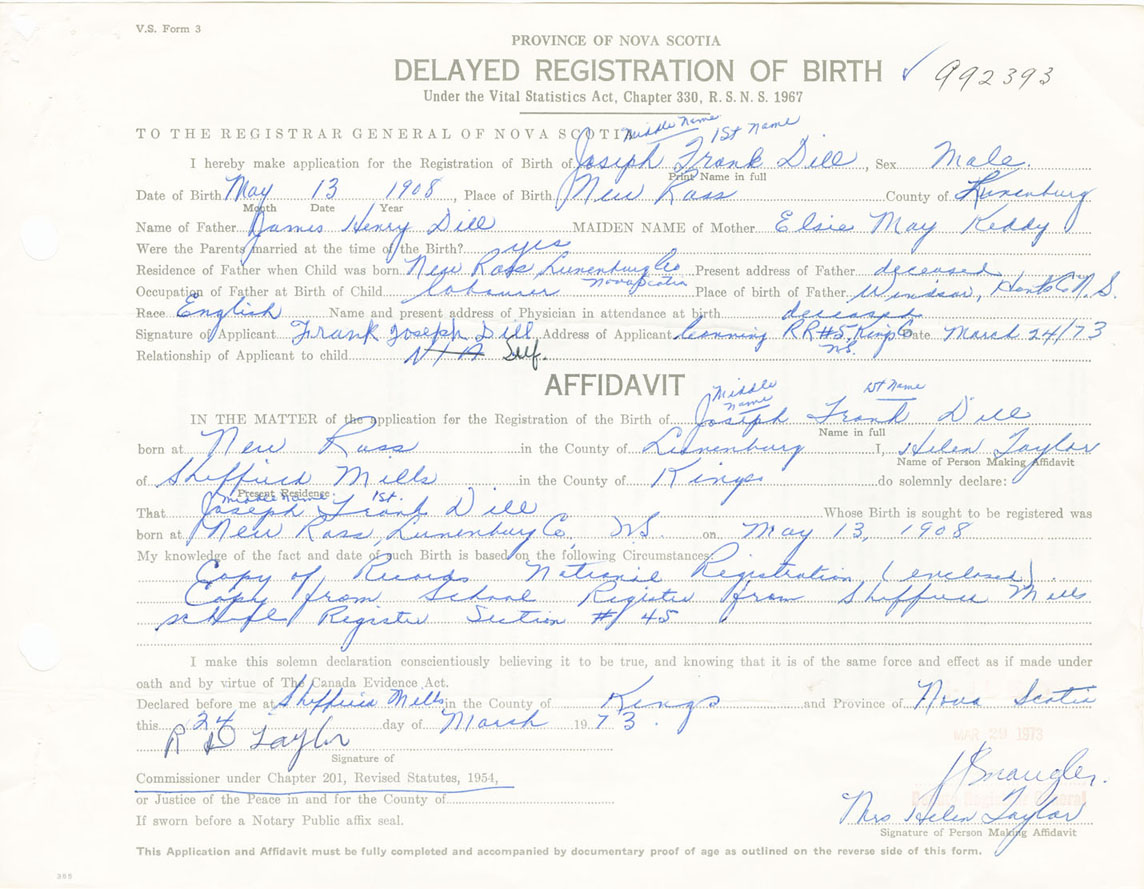 V.S. Form 3
PROVINCE OF NOVA SCOTIA
DELAYED REGISTRATION OF BIRTH ✓ 992393
Under the Vital Statistics Act, Chapter 330, R. S. N. S. 1967
TO THE REGISTRAR GENERAL OF NOVA SCOTIA
Middle Name 1st Name
I hereby make application for the Registration of Birth of Joseph Frank Dill, Sex Male.
Print Name in full
Date of Birth May 13 1908, Place of Birth New Ross County of Lunenburg
Month Date Year
Name of Father James Henry Dill MAIDEN NAME of Mother Elsie May Keddy
Were the Parents married at the time of the Birth? yes
Residence of Father when Child was born New Ross Lunenburg Co Nova Scotia Present address of Father deceased
Occupation of Father at Birth of Child labourer Place of birth of Father Windsor, Hants Co N.S.
Race English Name and present address of Physician in attendance at birth deceased
Signature of Applicant Frank Joseph Dill Address of Applicant Canning RR#5, Kings Co NS. Date March 24/73
Relationship of Applicant to child N/A Self.
AFFIDAVIT
Middle Name 1st Name
IN THE MATTER of the application for the Registration of the Birth of Joseph Frank Dill
Name in full
born at New Ross in the County of Lunenburg I, Helen Taylor
Name of Person Making Affidavit
of Sheffield Mills in the County of Kings do solemnly declare:
Present Residence
Middle Name 1st.
That Joseph Frank Dill Whose Birth is sought to be registered was
born at New Ross, Lunenburg Co, NS. on May 13, 1908
My knowledge of the fact and date of such Birth is based on the following Circumstances:
Copy of Records National Registration (enclosed).
Copy from School Register from Sheffield Mills
School Register Section #45
I make this solemn declaration conscientiously believing it to be true, and knowing that it is of the same force and effect as if made under
oath and by virtue of The Canada Evidence Act.
Declared before me at Sheffield Mills in the County of Kings and Province of Nova Scotia
this 24 day of March 1973.
MAR 29 1973
R D Taylor
Signature of
Commissioner under Chapter 201, Revised Statutes, 1954,
or Justice of the Peace in and for the County of
If sworn before a Notary Public affix seal.
Mrs Helen Taylor
Signature of Person Making Affidavit
This Application and Affidavit must be fully completed and accompanied by documentary proof of age as outlined on the reverse side of this form.
365